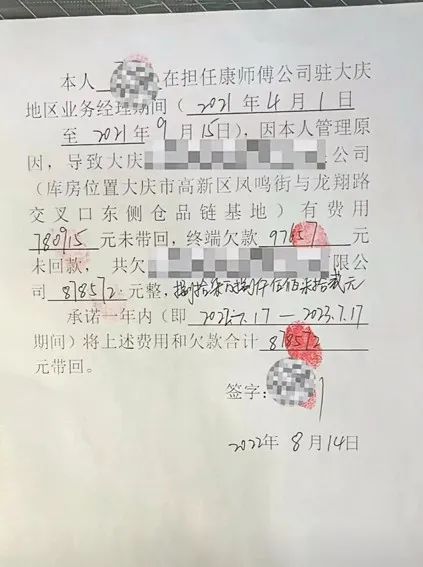 本人 在担任康师傅公司驻大庆
地区业务经理期间（2021年4月1日
至2021年9月15日），因本人管理原
因，导致大庆 公司
（库房位置大庆市高新区凤鸣街与龙翔路
交叉口东侧仓品链基地）有费用
780915元未带回，终端欠款97657元
未回款，共欠 限公
司878572元整，捌拾柒万捌仟伍佰柒拾贰元
承诺一年内（即2022.7.17—2023.7.17
期间）将上述费用和欠款合计878572
元带回。
签字：
2022年8月14日